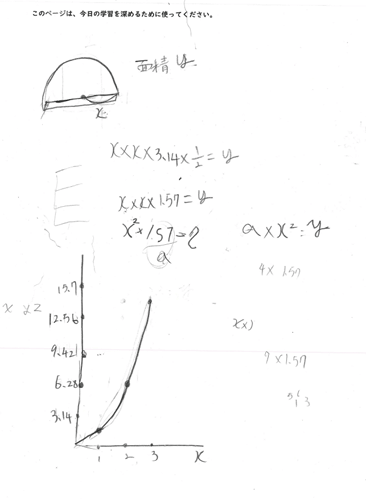 このページは、今日の学習を深めるために使ってください。
面積 y
x
x×x×3.14×1/2=y
x×x×1.57=y
x²×1.57=
a
a×x²=y
4×1.57
15.7
12.56
9.42
6.28
3.14
1 2 3 x